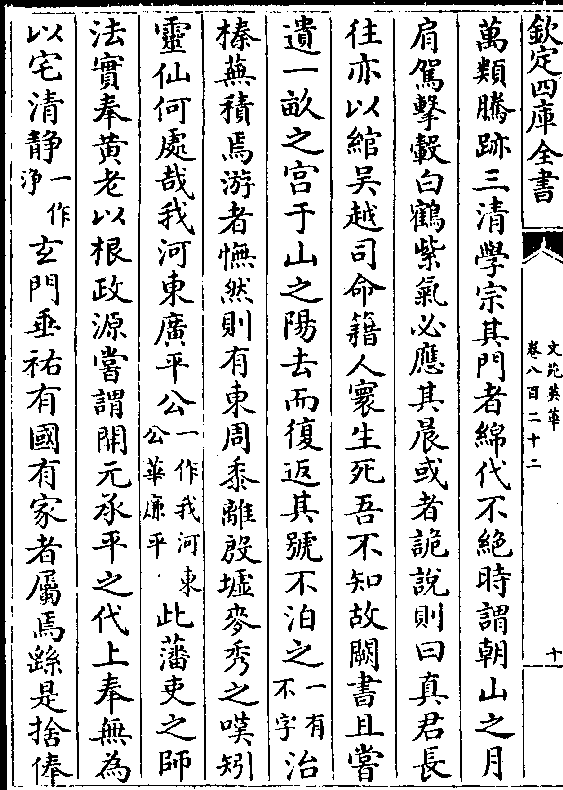 欽定四庫全書
文苑英華
卷八百二十二
十
萬類騰跡三清學宗其門者綿代不絶時謂朝山之月
肩駕擊轂白鶴紫氣必應其晨或者詭說則曰真君長
往亦以綰吳越司命籍人寰生死吾不知故闕書且嘗
遺一畝之宫于山之陽去而復返其號不泊之一有不字治
榛蕪積焉游者憮然則有東周黍離殷墟麥秀之嘆矧
靈仙何處哉我河東廣平公一作我河東公華廉平此藩吏之師
法實奉黄老以根政源嘗謂開元承平之代上奉無為
以宅清静一作浄玄門垂祐有國有家者屬焉繇是捨俸